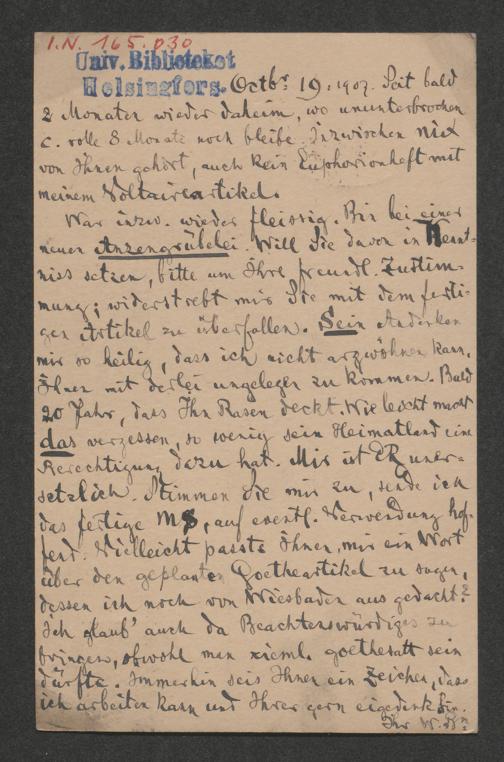 I.N. 165.030
Univ. Biblioteket
Helsingfors.
Octbr 19. 1907. Seit bald
2 Monaten wieder daheim, wo ununterbrochen
c. volle 8 Monate noch bleibe. Inzwischen nix
von Ihnen gehört, auch kein Euphorionheft mit
meinem Voltaireartikel.
War inzw. wieder fleissig. Bin bei einer
neuen Anzengrübelei. Will Sie davon in Kennt-
niss setzen, bitte um Ihre freundl. Zustim-
mung; widerstrebt mir Sie mit dem ferti-
gen Artikel zu überfallen. Sein Andenken
mir so heilig, dass ich nicht argwöhnen kann,
Ihnen mit derlei ungelegen zu kommen. Bald
20 Jahr, dass Ihn Rasen deckt. Wie leicht macht
das vergessen, so wenig sein Heimatland eine
Berechtigung dazu hat. Mir ist ER uner-
setzlich. Stimmen Sie mir zu, sende ich
das fertige MS, auf eventl. Verwendung hof-
fend. Vielleicht passts Ihnen, mir ein Wort
über den geplanten Goetheartikel zu sagen,
dessen ich noch von Wiesbaden aus gedacht?
Ich glaub' auch da Beachtenswürdiges zu
bringen, obwohl man zieml. goethesatt sein
dürfte. Immerhin seis Ihnen ein Zeichen, dass
ich arbeiten kann und Ihrer gern eigedenk bin.
Ihr W.